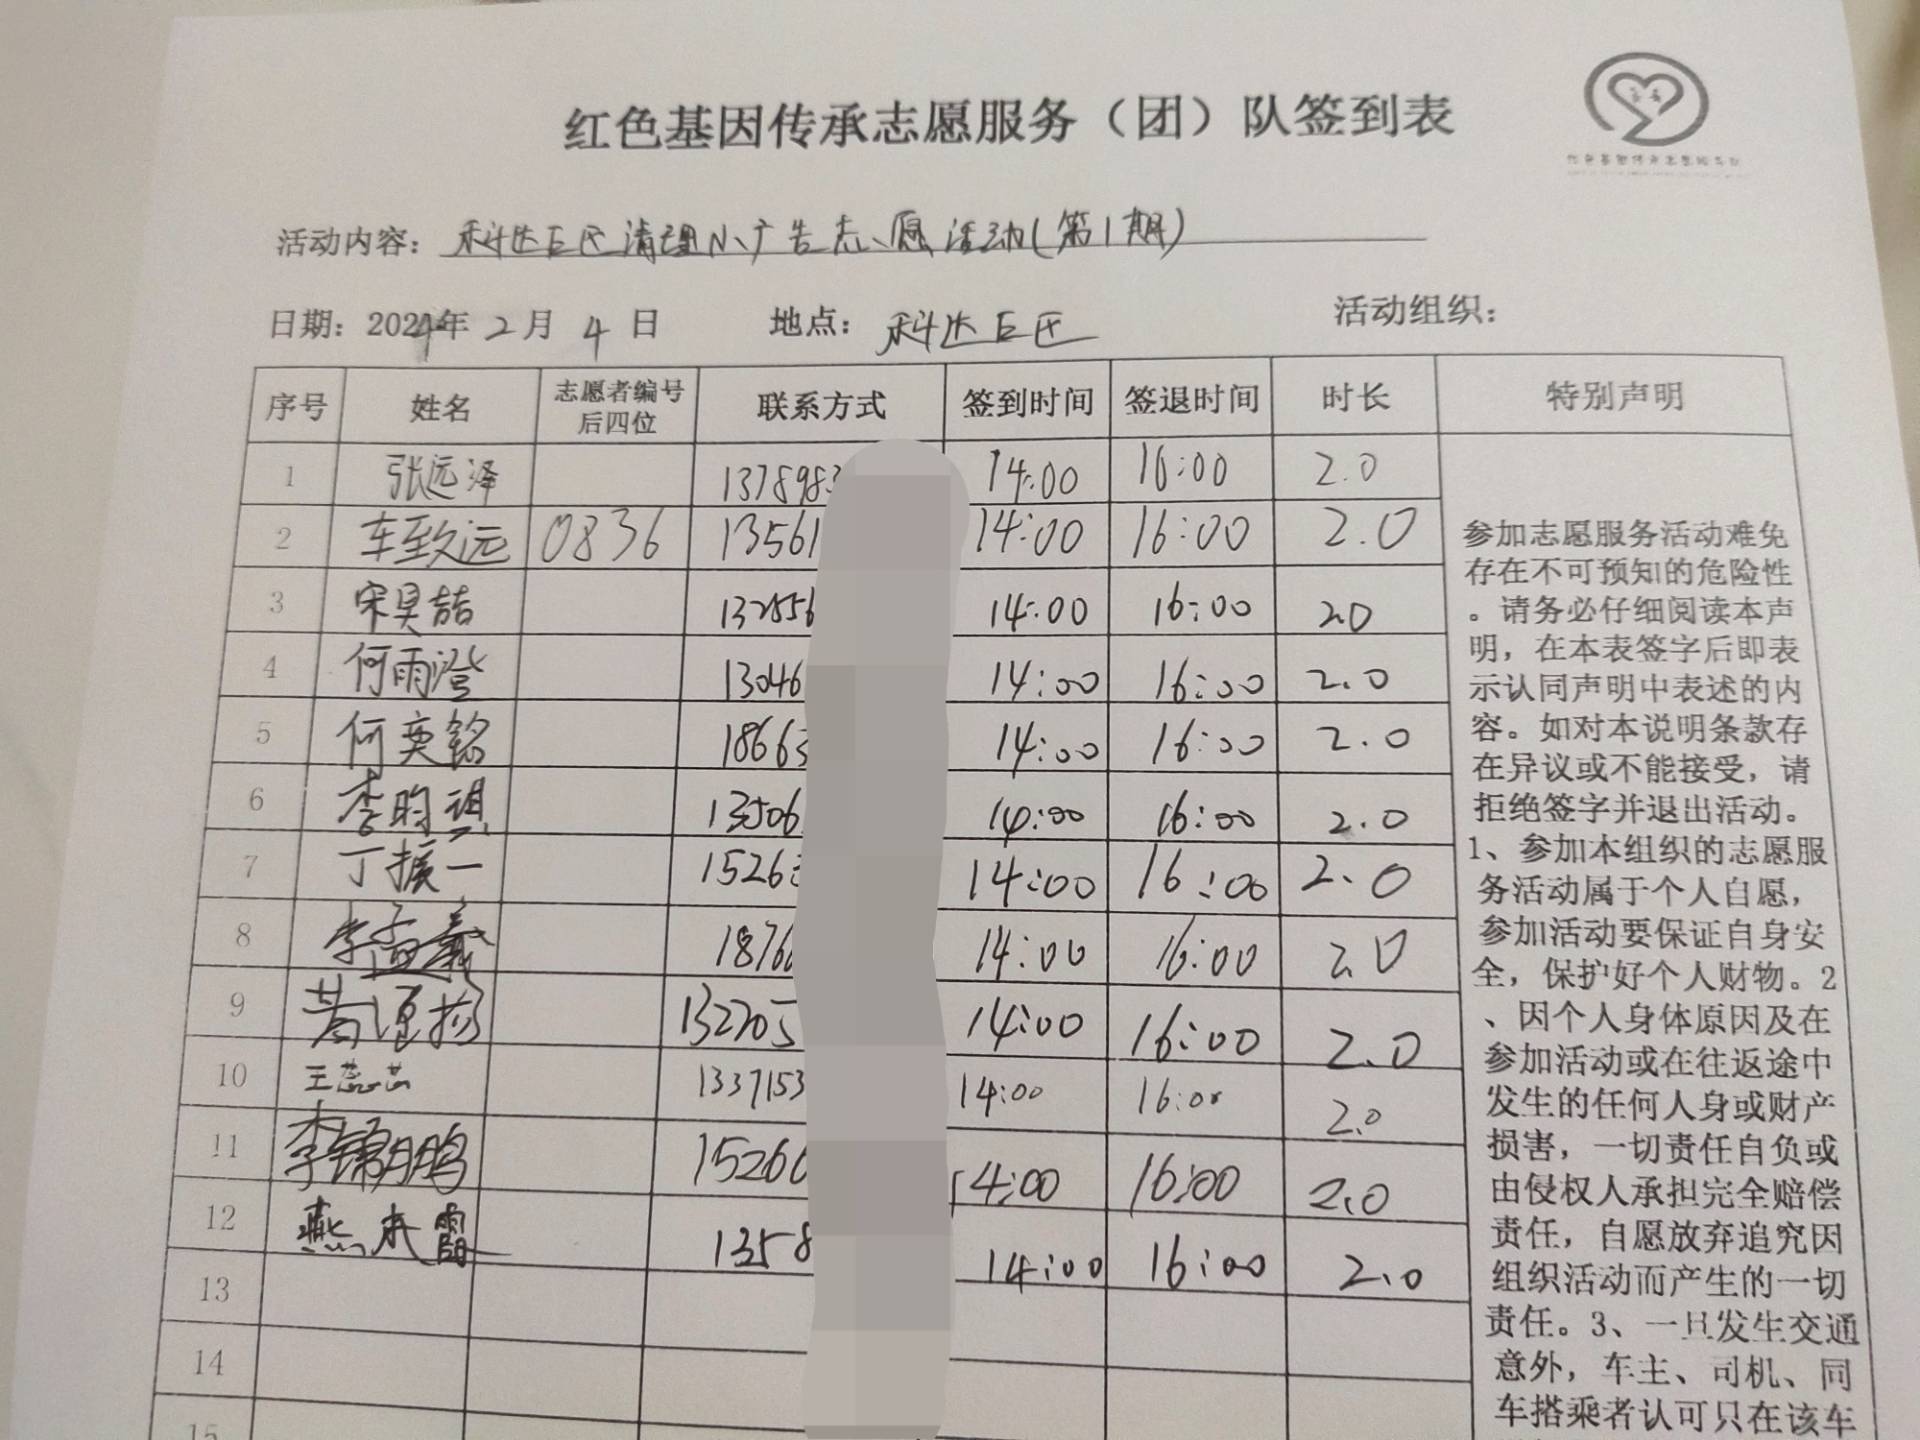 红色基因传承志愿服务（团）队签到表
活动内容：科达巨区清理小广告志愿活动(第1期)
日期：2024年2月4日 地点：科达巨区 活动组织：
序号 姓名 志愿者编号后四位 联系方式 签到时间 签退时间 时长 特别声明
1 张远泽 1378983 14:00 16:00 2.0
2 车致远 0836 13561 14:00 16:00 2.0
3 宋昊喆 132556 14:00 16:00 2.0
4 何雨澄 13046 14:00 16:00 2.0
5 何奕铭 18663 14:00 16:00 2.0
6 李昀琪 13506 14:00 16:00 2.0
7 丁援一 15263 14:00 16:00 2.0
8 李孟羲 1876 14:00 16:00 2.0
9 132705 14:00 16:00 2.0
10 王蕊芯 1337153 14:00 16:00 2.0
11 李锦鹏 15266 14:00 16:00 2.0
12 燕本霄 1358 14:00 16:00 2.0
13
14
15
参加志愿服务活动难免
存在不可预知的危险性
。请务必仔细阅读本声
明，在本表签字后即表
示认同声明中表述的内
容。如对本说明条款存
在异议或不能接受，请
拒绝签字并退出活动。
1、参加本组织的志愿服
务活动属于个人自愿，
参加活动要保证自身安
全，保护好个人财物。2
、因个人身体原因及在
参加活动或在往返途中
发生的任何人身或财产
损害，一切责任自负或
由侵权人承担完全赔偿
责任，自愿放弃追究因
组织活动而产生的一切
责任。3、一旦发生交通
意外，车主、司机、同
车搭乘者认可只在该车